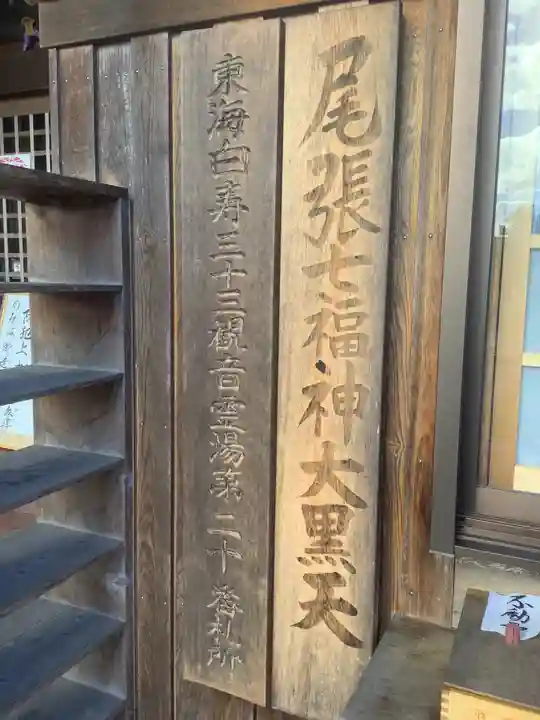 尾張七福神大黒天
東海白寿三十三観音霊場第二十番札所